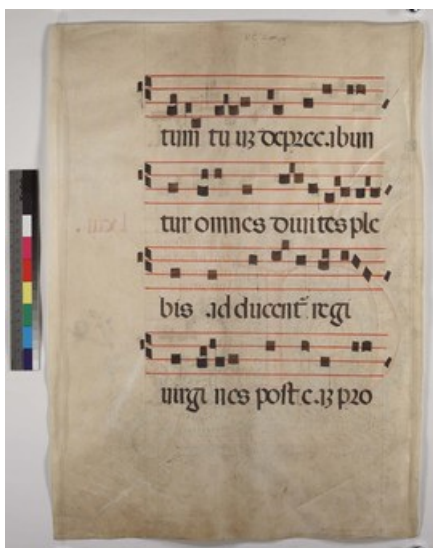 tum tu uʒ deprec abun
tur omnes diuites ple
bis ad ducent᷑ regi
uirgi nes post e aʒ pro